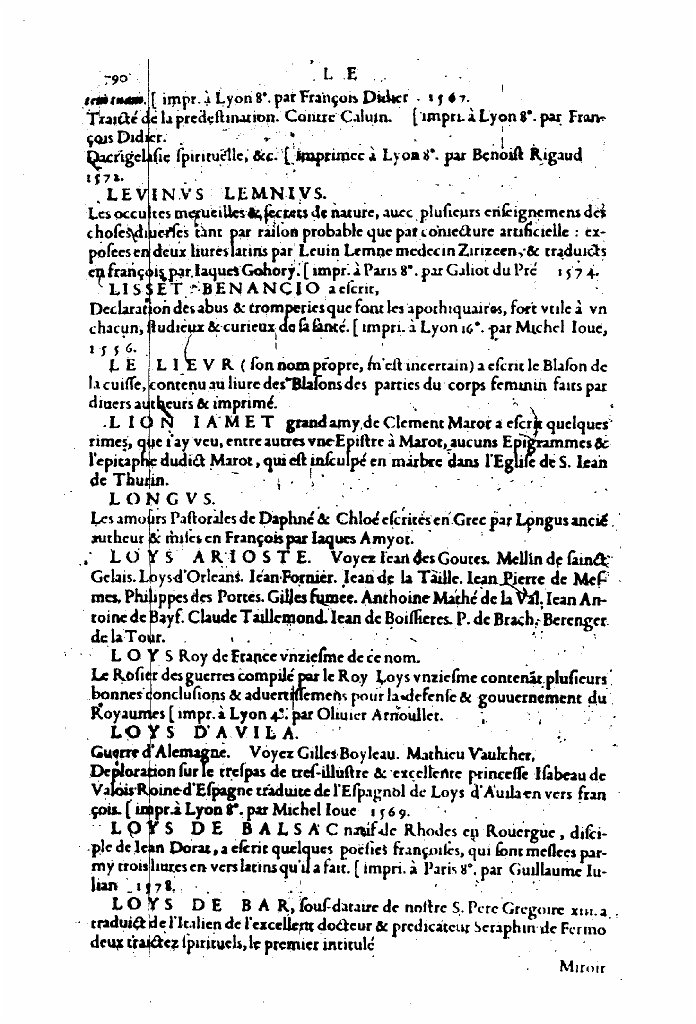 790
LE
[ impr. à Lyon 8°. par François Didier . 1567.
Traicté de la predestination. Contre Caluin. [ impri. à Lyon 8°. par Fran-
çois Didier.
Dacrigelasie spirituelle, &c. [ imprimee à Lyon 8°. par Benoist Rigaud
1572.
LEVINVS LEMNIVS.
Les occultes merueilles & secrets de nature, auec plusieurs enseignemens des
choses diuerses tant par raison probable que par coniecture artificielle : ex-
posees en deux liures latins par Leuin Lemne medecin Zirizeen, & traduicts
en françois par Iaques Gohory. [ impr. à Paris 8°. par Galiot du Pré 1574.
LISSET BENANCIO a escrit,
Declaration des abus & tromperies que font les apothiquaires, fort vtile à vn
chacun, studieux & curieux de sa santé. [ impri. à Lyon 16°. par Michel Ioue,
1556.
LE LIEVR ( son nom propre, m'est incertain ) a escrit le Blason de
la cuisse, contenu au liure des Blasons des parties du corps feminin faits par
diuers autheurs & imprimé.
LION IAMET grand amy de Clement Marot a escrit quelques
rimes, que i'ay veu, entre autres vne Epistre à Marot, aucuns Epigrammes &
l'epitaphe dudict Marot, qui est insculpé en marbre dans l'Eglise de S. Iean
de Thurin.
LONGVS.
Les amours Pastorales de Daphné & Chloé escrites en Grec par Longus anciē
autheur & mises en François par Iaques Amyot.
LOYS ARIOSTE. Voyez Iean des Goutes. Mellin de sainct
Gelais. Loys d'Orleans. Iean Fornier. Iean de la Taille. Iean Pierre de Mes-
mes. Philippes des Portes. Gilles fumee. Anthoine Mathé de la Val. Iean An-
toine de Bayf. Claude Taillemond. Iean de Boissieres. P. de Brach. Berenger
de la Tour.
LOYS Roy de France vnziesme de ce nom.
Le Rosier des guerres compilé par le Roy Loys vnziesme contenāt plusieurs
bonnes conclusions & aduertissemens pour la defense & gouuernement du
Royaumes [ impr. à Lyon 4°. par Oliuier Arnoullet.
LOYS D'AVILA.
Guerre d'Alemagne. Voyez Gilles Boyleau. Mathieu Vaulcher,
Deploration sur le trespas de tres-illustre & excellente princesse Isabeau de
Valois Roine d'Espagne traduite de l'Espagnol de Loys d'Auila en vers fran
çois. [ impr. à Lyon 8°. par Michel Ioue 1569.
LOYS DE BALSAC natif de Rhodes en Rouergue, disci-
ple de Iean Dorat, a escrit quelques poësies françoises, qui sont meslees par-
my trois liures en vers latins qu'il a fait. [ impri. à Paris 8°. par Guillaume Iu-
lian 1578.
LOYS DE BAR, sous-dataire de nostre S. Pere Gregoire xiii. a
traduict de l'Italien de l'excellent docteur & predicateur Seraphin de Fermo
deux traictez spirituels, le premier intitulé
Miroir